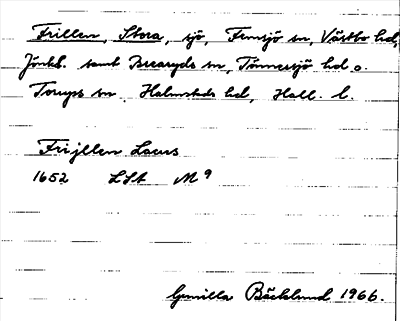 Frillen, Stora, sjö, Femsjö sn, Västbo hd,
Jönk. samt Breareds sn, Tönnersjö hd o.
Torups sn, Halmstads hd, Hall. l.
Frijllen Lacus
1652 LSA M 9
Gunilla Bäcklund 1966.